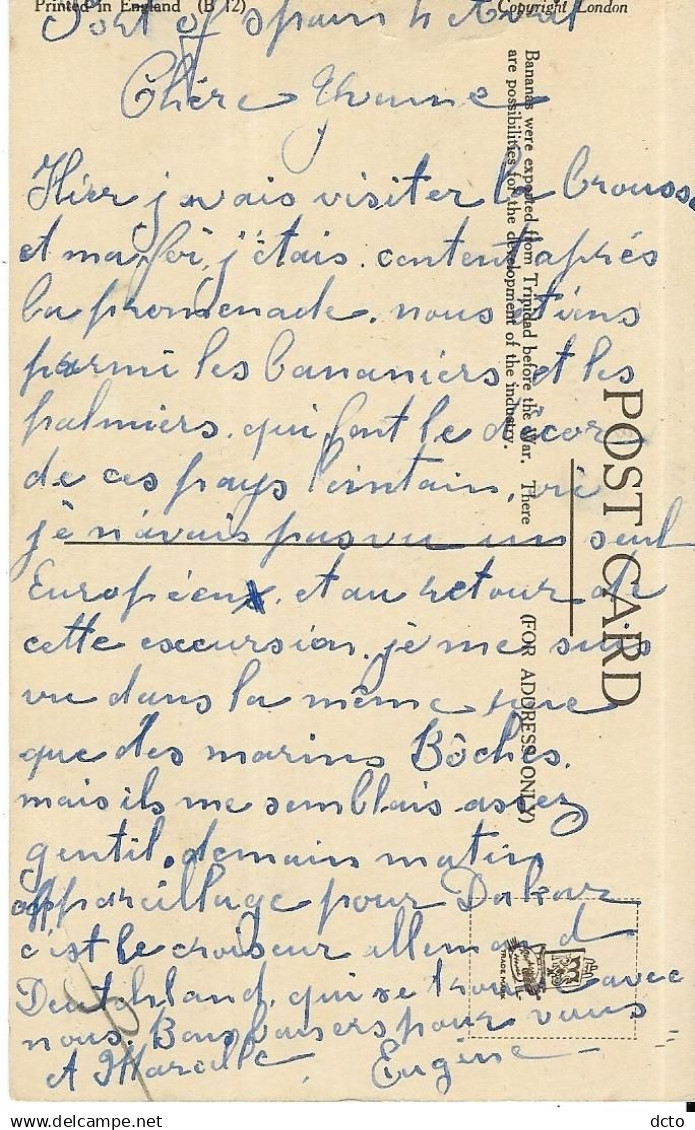 Printed in England (B 12)
Copyright London
Port of spain 4 Avril
Chère Yvonne
Hier j'avais visiter la brousse
et ma foi, j'étais. content après
la promenade. nous étions
parmi les bananiers et les
palmiers. qui font le décor
de ces pays lointain,
je n'avais pas vu un seul
Européen. et au retour de
cette excursion. je me suis
vu dans la même
que des marins Bôches.
mais ils me semblais assez
gentil. demain matin
appareillage pour Dakar
c'est le croiseur allemand
Deutchland. qui se trouve avec
nous. Bons baisers pour vous
A Marcelle Eugène
Bananas were exported from Trinidad before the War. There
are possibilities for the development of the industry.
POST CARD
(FOR ADDRESS ONLY)
TRADE MARK
dcto